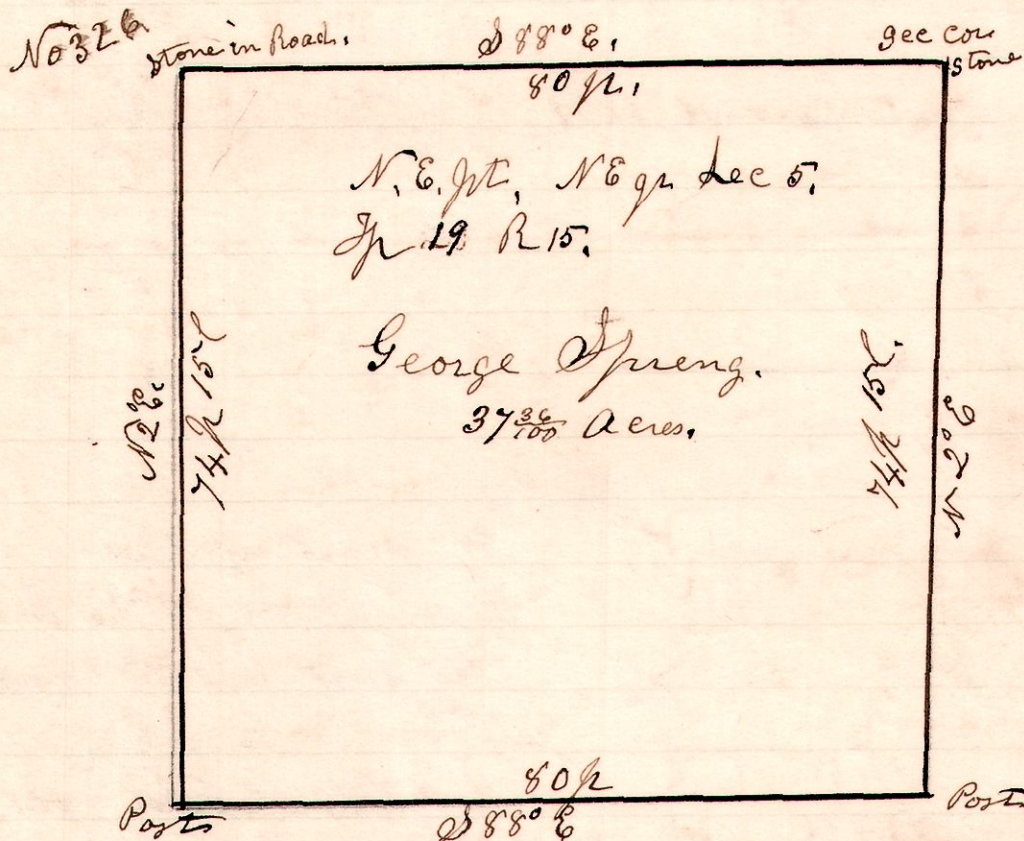 No 326
Stone in Road.
S 88° E.
Sec Cor
Stone
80 p.
N. E. pt, NE qr Sec 5.
Tp 19 R 15.
George Spreng.
37 36/100 Acres.
N 2° E.
74 p 15 l
74 p 15 l.
N 2° E
80 p
Posts
S 88° E
Posts